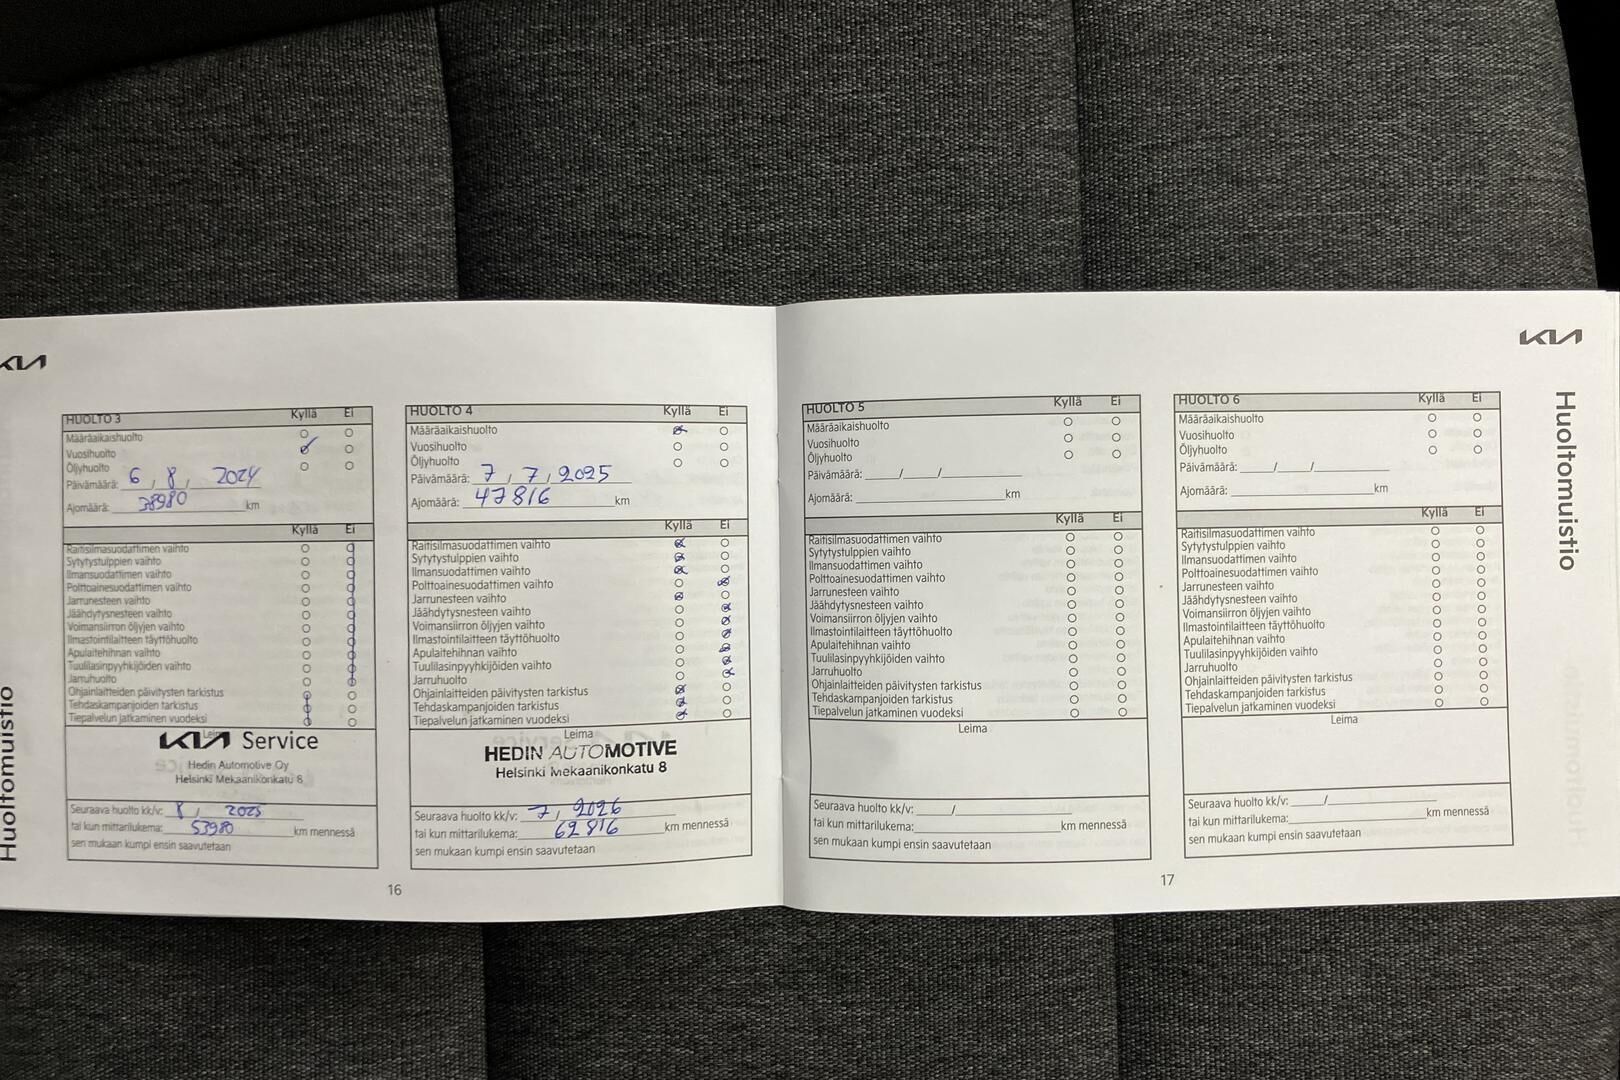 KIA
HUOLTO 3 Kyllä Ei
Määräaikaishuolto
Vuosihuolto
Öljyhuolto
Päivämäärä: 6, 8, 2024
Ajomäärä: 38980 km
Kyllä Ei
Raitisilmasuodattimen vaihto
Sytytystulppien vaihto
Ilmansuodattimen vaihto
Polttoainesuodattimen vaihto
Jarrunesteen vaihto
Jäähdytysnesteen vaihto
Voimansiirron öljyjen vaihto
Ilmastointilaitteen täyttöhuolto
Apulaitehihnan vaihto
Tuulilasinpyyhkijöiden vaihto
Jarruhuolto
Ohjainlaitteiden päivitysten tarkistus
Tehdaskampanjoiden tarkistus
Tiepalvelun jatkaminen vuodeksi
Leima
KIA Service
Hedin Automotive Oy
Helsinki Mekaanikonkatu 8
Seuraava huolto kk/v: 8, 2025
tai kun mittarilukema: 53980 km mennessä
sen mukaan kumpi ensin saavutetaan
HUOLTO 4 Kyllä Ei
Määräaikaishuolto
Vuosihuolto
Öljyhuolto
Päivämäärä: 7, 7, 2025
Ajomäärä: 47816 km
Kyllä Ei
Raitisilmasuodattimen vaihto
Sytytystulppien vaihto
Ilmansuodattimen vaihto
Polttoainesuodattimen vaihto
Jarrunesteen vaihto
Jäähdytysnesteen vaihto
Voimansiirron öljyjen vaihto
Ilmastointilaitteen täyttöhuolto
Apulaitehihnan vaihto
Tuulilasinpyyhkijöiden vaihto
Jarruhuolto
Ohjainlaitteiden päivitysten tarkistus
Tehdaskampanjoiden tarkistus
Tiepalvelun jatkaminen vuodeksi
Leima
HEDIN AUTOMOTIVE
Helsinki Mekaanikonkatu 8
Seuraava huolto kk/v: 7, 2026
tai kun mittarilukema: 62816 km mennessä
sen mukaan kumpi ensin saavutetaan
Huoltomuistio
16
KIA
HUOLTO 5 Kyllä Ei
Määräaikaishuolto
Vuosihuolto
Öljyhuolto
Päivämäärä: ____/____/____
Ajomäärä: ____ km
Kyllä Ei
Raitisilmasuodattimen vaihto
Sytytystulppien vaihto
Ilmansuodattimen vaihto
Polttoainesuodattimen vaihto
Jarrunesteen vaihto
Jäähdytysnesteen vaihto
Voimansiirron öljyjen vaihto
Ilmastointilaitteen täyttöhuolto
Apulaitehihnan vaihto
Tuulilasinpyyhkijöiden vaihto
Jarruhuolto
Ohjainlaitteiden päivitysten tarkistus
Tehdaskampanjoiden tarkistus
Tiepalvelun jatkaminen vuodeksi
Leima
Seuraava huolto kk/v: ____/____
tai kun mittarilukema: ____ km mennessä
sen mukaan kumpi ensin saavutetaan
HUOLTO 6 Kyllä Ei
Määräaikaishuolto
Vuosihuolto
Öljyhuolto
Päivämäärä: ____/____/____
Ajomäärä: ____ km
Kyllä Ei
Raitisilmasuodattimen vaihto
Sytytystulppien vaihto
Ilmansuodattimen vaihto
Polttoainesuodattimen vaihto
Jarrunesteen vaihto
Jäähdytysnesteen vaihto
Voimansiirron öljyjen vaihto
Ilmastointilaitteen täyttöhuolto
Apulaitehihnan vaihto
Tuulilasinpyyhkijöiden vaihto
Jarruhuolto
Ohjainlaitteiden päivitysten tarkistus
Tehdaskampanjoiden tarkistus
Tiepalvelun jatkaminen vuodeksi
Leima
Seuraava huolto kk/v: ____/____
tai kun mittarilukema: ____ km mennessä
sen mukaan kumpi ensin saavutetaan
Huoltomuistio
17